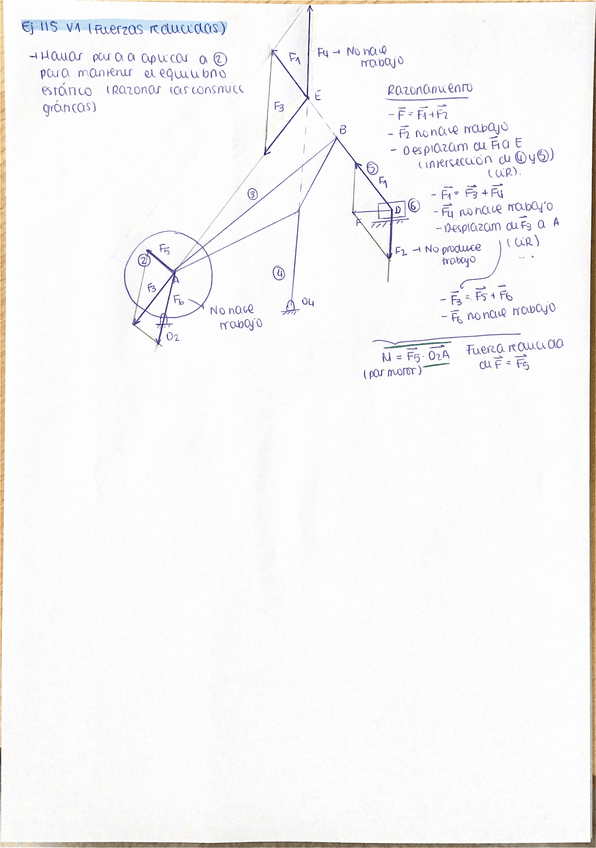 Ej 115 V1 (Fuerzas reducidas)
→ Hallar par a a aplicar a ②
para mantener el equilibrio
estático (Razonar las construcc
gráficas)
F1
F4 → No hace
trabajo
F3
E
B
③
⑤
F1
D
⑥
F
F2 → No produce
trabajo
④
O4
②
F5
A
F3
F6
No hace
trabajo
O2
Razonamiento
- F = F1 + F2
- F2 no hace trabajo
- Desplazam de F1 a E
(intersección de ④ y ⑤)
(CIR).
- F1 = F3 + F4
- F4 no hace trabajo
- Desplazam de F3 a A
(CIR)
...
- F3 = F5 + F6
- F6 no hace trabajo
M = F5 · O2A
(par motor)
Fuerza reducida
de F = F5